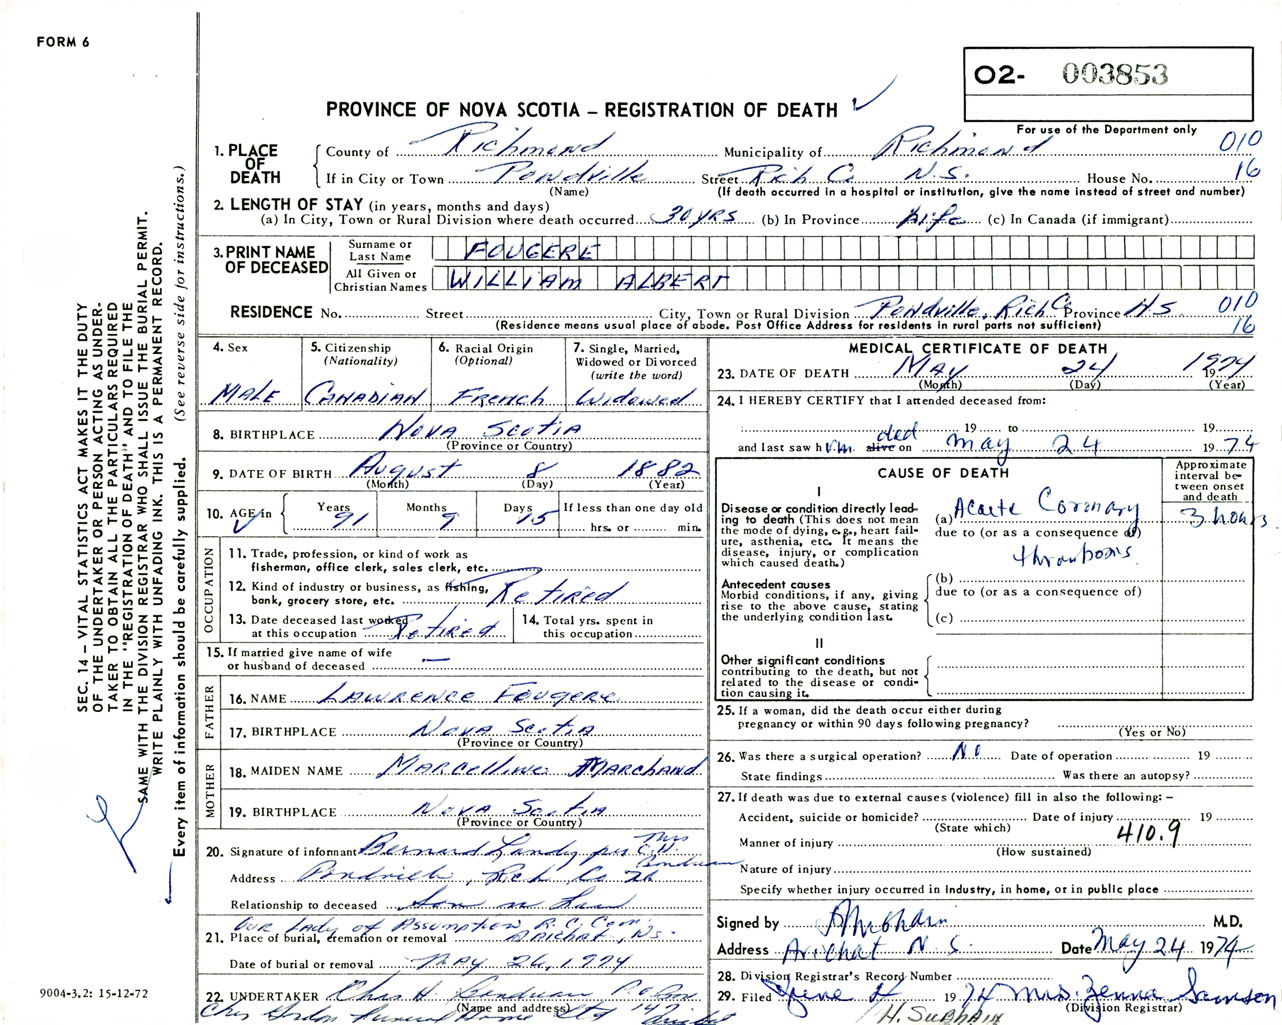 FORM 6
O2- 003853
PROVINCE OF NOVA SCOTIA – REGISTRATION OF DEATH
For use of the Department only
1. PLACE OF DEATH
County of Richmond Municipality of Richmond 010
If in City or Town Pondville Street Rich Co N.S. House No. 16
(Name) (If death occurred in a hospital or institution, give the name instead of street and number)
2. LENGTH OF STAY (in years, months and days)
(a) In City, Town or Rural Division where death occurred 30 yrs (b) In Province life (c) In Canada (if immigrant)
3. PRINT NAME OF DECEASED
Surname or Last Name FOUGERE
All Given or Christian Names WILLIAM ALBERT
RESIDENCE No. Street City, Town or Rural Division Pondville, Rich Co Province N.S. 010
(Residence means usual place of abode. Post Office Address for residents in rural parts not sufficient) 16
4. Sex
MALE
5. Citizenship
(Nationality)
CANADIAN
6. Racial Origin
(Optional)
French
7. Single, Married,
Widowed or Divorced
(write the word)
Widowed
8. BIRTHPLACE NOVA SCOTIA
(Province or Country)
9. DATE OF BIRTH August 8 1882
(Month) (Day) (Year)
10. AGE in Years Months Days If less than one day old
91 9 15 hrs. or min.
OCCUPATION
11. Trade, profession, or kind of work as
fisherman, office clerk, sales clerk, etc.
12. Kind of industry or business, as fishing,
bank, grocery store, etc. Retired
13. Date deceased last worked
at this occupation Retired
14. Total yrs. spent in
this occupation
15. If married give name of wife
or husband of deceased —
FATHER
16. NAME LAWRENCE FOUGERE
17. BIRTHPLACE NOVA SCOTIA
(Province or Country)
MOTHER
18. MAIDEN NAME MARCELLINE MARCHAND
19. BIRTHPLACE NOVA SCOTIA
(Province or Country)
20. Signature of informant Bernard Landry per Mrs C.H.
Address Rich Co
Relationship to deceased Son in Law
OUR Lady of Assumption R.C. Cem.
21. Place of burial, cremation or removal ARICHAT, NS.
Date of burial or removal MAY 26, 1974
22. UNDERTAKER Chas H.
(Name and address)
Funeral Home Ltd Arichat
MEDICAL CERTIFICATE OF DEATH
23. DATE OF DEATH MAY 24 1974
(Month) (Day) (Year)
24. I HEREBY CERTIFY that I attended deceased from:
19 to 19
and last saw him alive dead on May 24 1974
CAUSE OF DEATH
Approximate interval between onset and death
I
Disease or condition directly leading to death (This does not mean the mode of dying, e.g., heart failure, asthenia, etc. It means the disease, injury, or complication which caused death.)
(a) Acute Coronary 3 hours
due to (or as a consequence of)
thrombosis
Antecedent causes
Morbid conditions, if any, giving rise to the above cause, stating the underlying condition last.
(b)
due to (or as a consequence of)
(c)
II
Other significant conditions contributing to the death, but not related to the disease or condition causing it.
25. If a woman, did the death occur either during
pregnancy or within 90 days following pregnancy?
(Yes or No)
26. Was there a surgical operation? No Date of operation 19
State findings Was there an autopsy?
27. If death was due to external causes (violence) fill in also the following: –
Accident, suicide or homicide? Date of injury 19
(State which)
410.9
Manner of injury
(How sustained)
Nature of injury
Specify whether injury occurred in industry, in home, or in public place
Signed by M.D.
Address Arichat N.S. Date May 24 1974
28. Division Registrar's Record Number
29. Filed June 4 1974 Mrs. Zenna Samson
(Division Registrar)
SEC. 14 – VITAL STATISTICS ACT MAKES IT THE DUTY
OF THE UNDERTAKER OR PERSON ACTING AS UNDER-
TAKER TO OBTAIN ALL THE PARTICULARS REQUIRED
IN THE "REGISTRATION OF DEATH" AND TO FILE THE
SAME WITH THE DIVISION REGISTRAR WHO SHALL ISSUE THE BURIAL PERMIT.
WRITE PLAINLY WITH UNFADING INK. THIS IS A PERMANENT RECORD.
Every item of information should be carefully supplied. (See reverse side for instructions.)
9004-3.2: 15-12-72